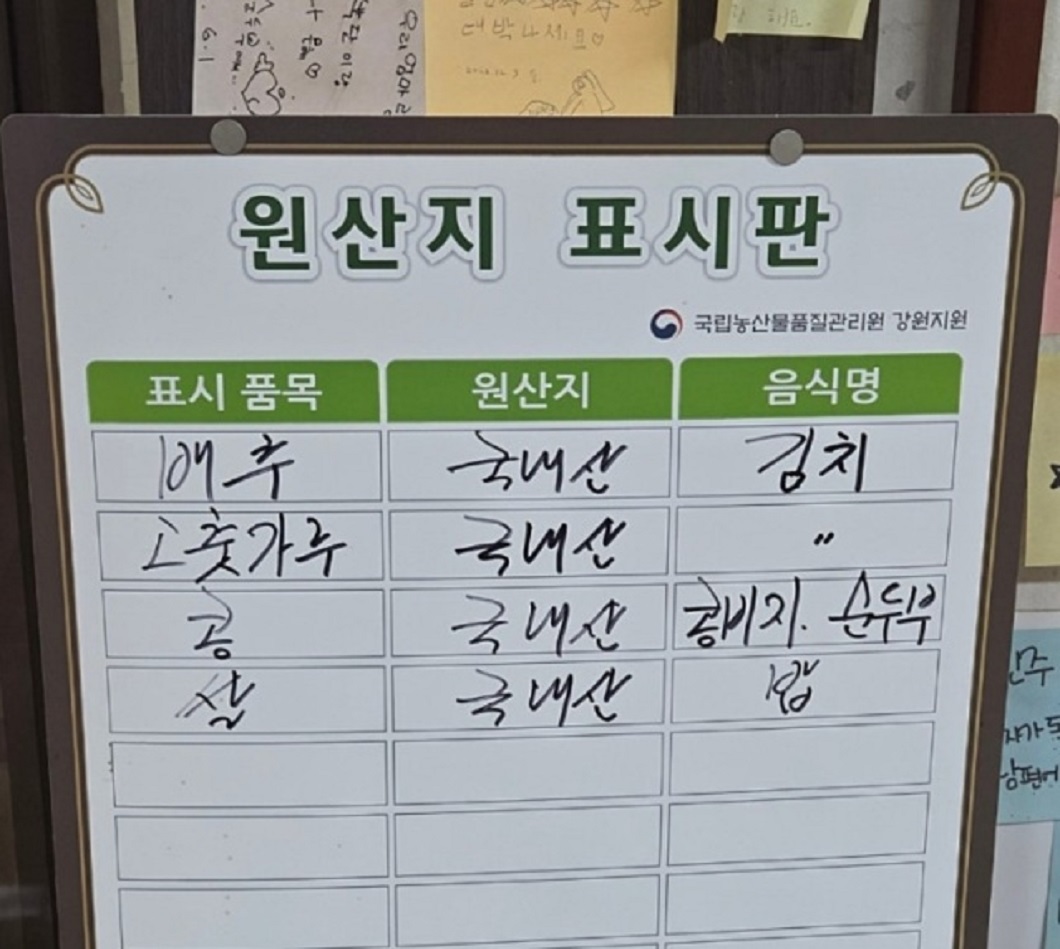 우리엄마랑
6.1
대박나세요♡
원산지 표시판
국립농산물품질관리원 강원지원
표시 품목 원산지 음식명
배추 국내산 김치
고춧가루 국내산 〃
콩 국내산 콩비지. 순두부
쌀 국내산 밥